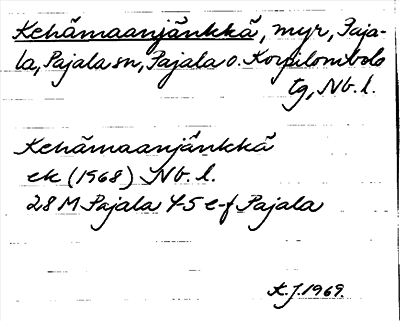 Kehämaanjänkkä, myr, Paja-
la, Pajala sn, Pajala o. Korpilombolo
tg, Nb. l.
Kehämaanjänkkä
ek (1968) Nb. l.
28 M Pajala 4-5 e-f Pajala
K.J. 1969